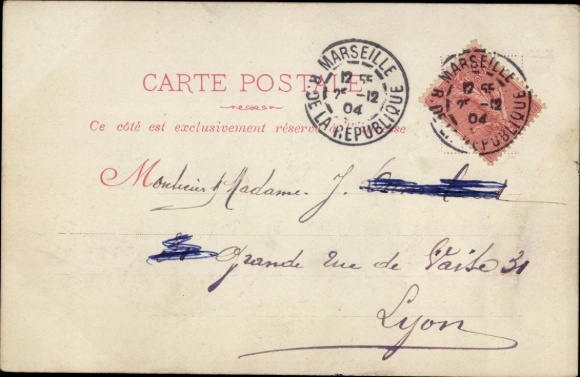 MARSEILLE
12 55
25 -12
04
R. DE LA RÉPUBLIQUE
MARSEILLE
12 55
25 -12
04
RÉPUBLIQUE
CARTE POSTALE
Ce côté est exclusivement réservé à
Monsieur & Madame J.
Grande rue de Vaise 31
Lyon